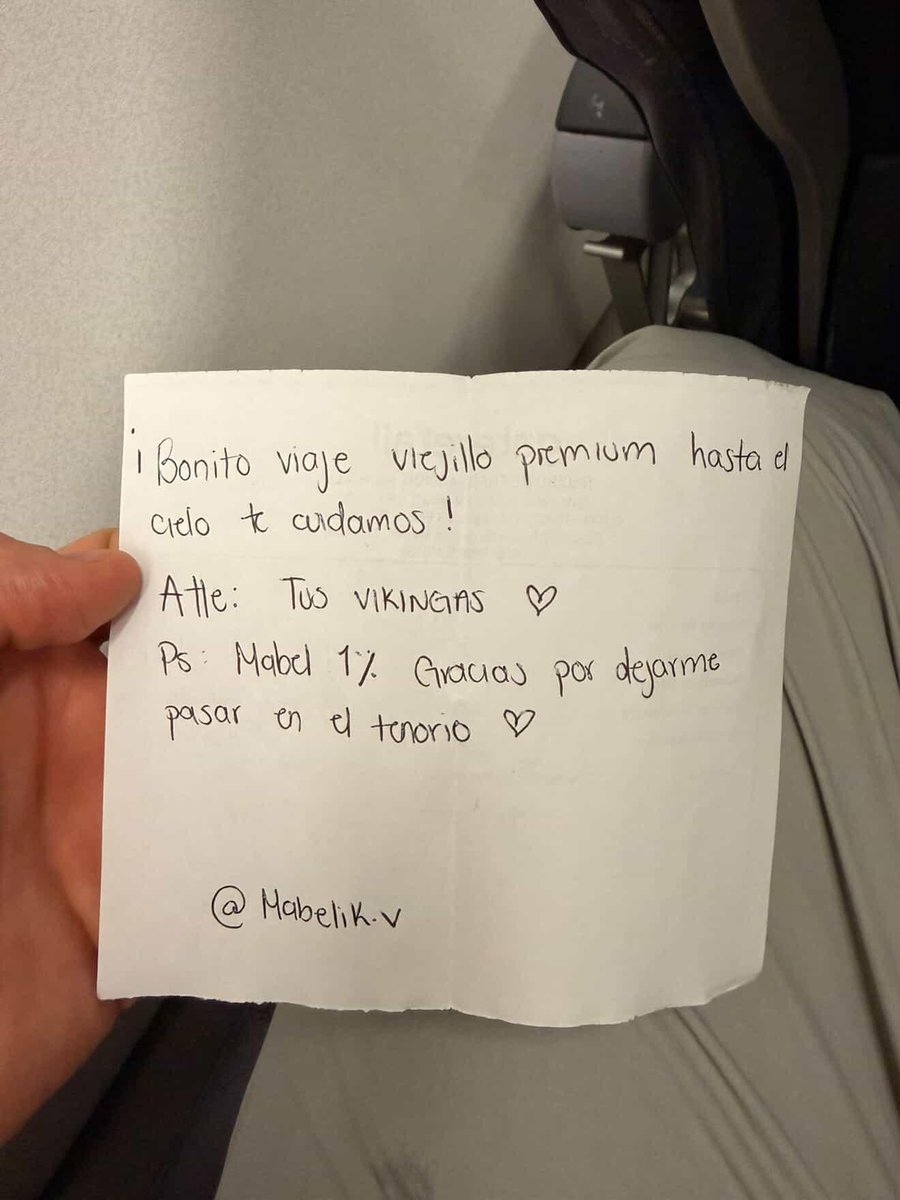 ¡Bonito viaje viejillo premium hasta el
cielo te cuidamos!
Atte: Tus VIKINGAS ♡
Ps: Mabel 1% Gracias por dejarme
pasar en el tenorio ♡
@Mabelik.v